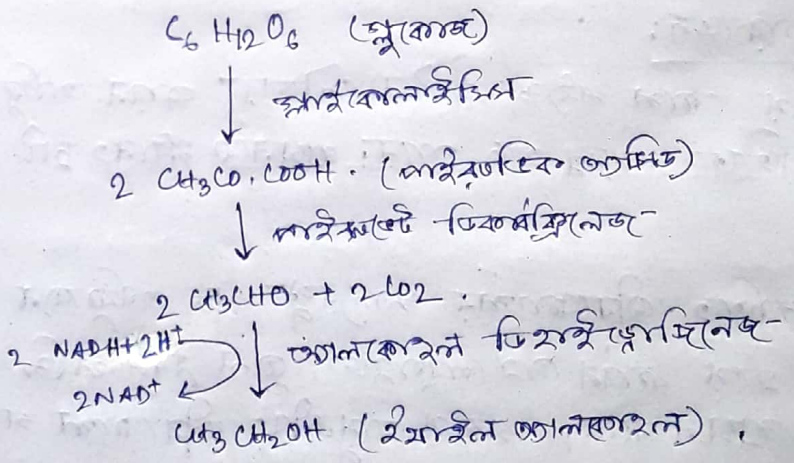 C6 H12O6 (গ্লুকোজ)
গ্লাইকোলাইসিস
2 CH3CO.COOH. (পাইরুভিক অ্যাসিড)
পাইরুভেট ডিকার্বক্সিলেজ
2 CH3CHO + 2CO2.
2 NADH+2H+
অ্যালকোহল ডিহাইড্রোজিনেজ
2NAD+
CH3 CH2OH (ইথাইল অ্যালকোহল).